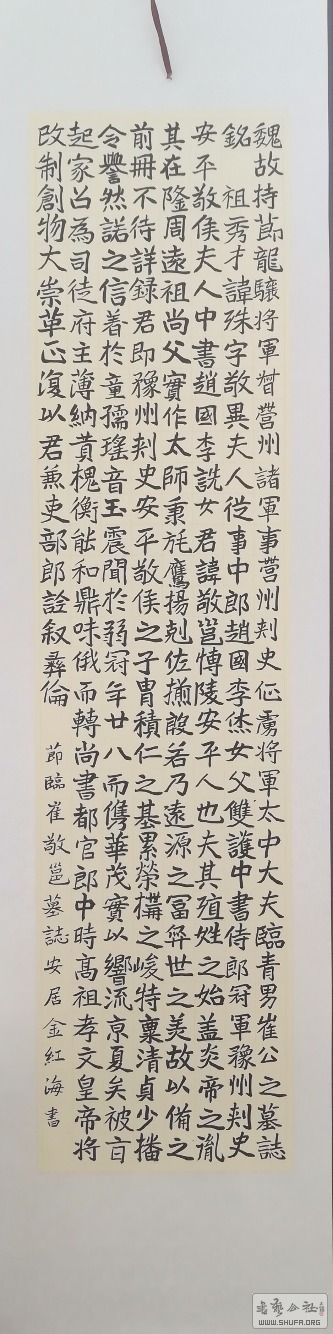 魏故持莭龍驤將軍督營州諸軍事營州刺史征虜將軍太中大夫臨青男崔公之墓誌
銘 祖秀才諱殊字敬異夫人從事中郎趙國李烋女父雙護中書侍郎冠軍豫州刺史
安平敬侯夫人中書趙國李詵女君諱敬邕博陵安平人也夫其殖姓之始蓋炎帝之胤
其在隆周遠祖尚父實作太師秉旄鷹揚剋佐揃殷若乃遠源之富弈世之美故以備之
前冊不待詳録君即豫州刺史安平敬侯之子胄積仁之基累榮構之峻特稟清貞少播
令譽然諾之信著於童孺瑤音玉震聞於弱冠年廿八而儁華茂實以響流京夏矣被旨
起家召為司徒府主薄納贊槐衡能和鼎味俄而轉尚書都官郎中時高祖孝文皇帝將
改制創物大崇革正復以君兼吏部郎詮叙彝倫
節臨崔敬邕墓誌安居金紅海書
書藝公社
WWW.SHUFA.ORG